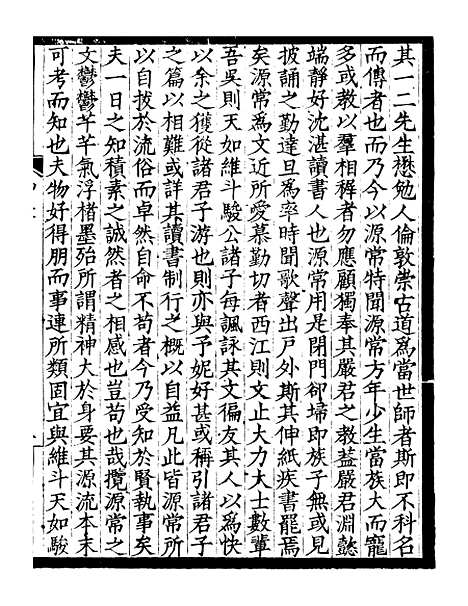 其一二先生懋勉人倫敦崇古道爲當世師者斯即不科名
而傳者也而乃今以源常特聞源常方年少生當族大而寵
多或教以羣相稺者勿應顧獨奉其嚴君之教益嚴君淵懿
端靜好沈湛讀書人也源常用是閉門卻埽即族子無或見
披誦之勤達旦爲率時聞歌聲出戶外斯其伸紙疾書罷焉
矣源常爲文近所愛慕勤切者西江則文止大力大士數輩
吾吳則天如維斗駿公諸子每諷詠其文徧友其人以爲快
以余之獲從諸君子游也則亦與予妮好甚或稱引諸君子
之篇以相難或詳其讀書制行之概以自益凡此皆源常所
以自拔於流俗而卓然自命不苟者今乃受知於賢執事矣
夫一日之知積素之誠然者之相感也豈苟也哉攬源常之
文鬱鬱芊芊氣浮楮墨殆所謂精神大於身要其源流本末
可考而知也夫物好得朋而事連所類固宜與維斗天如駿